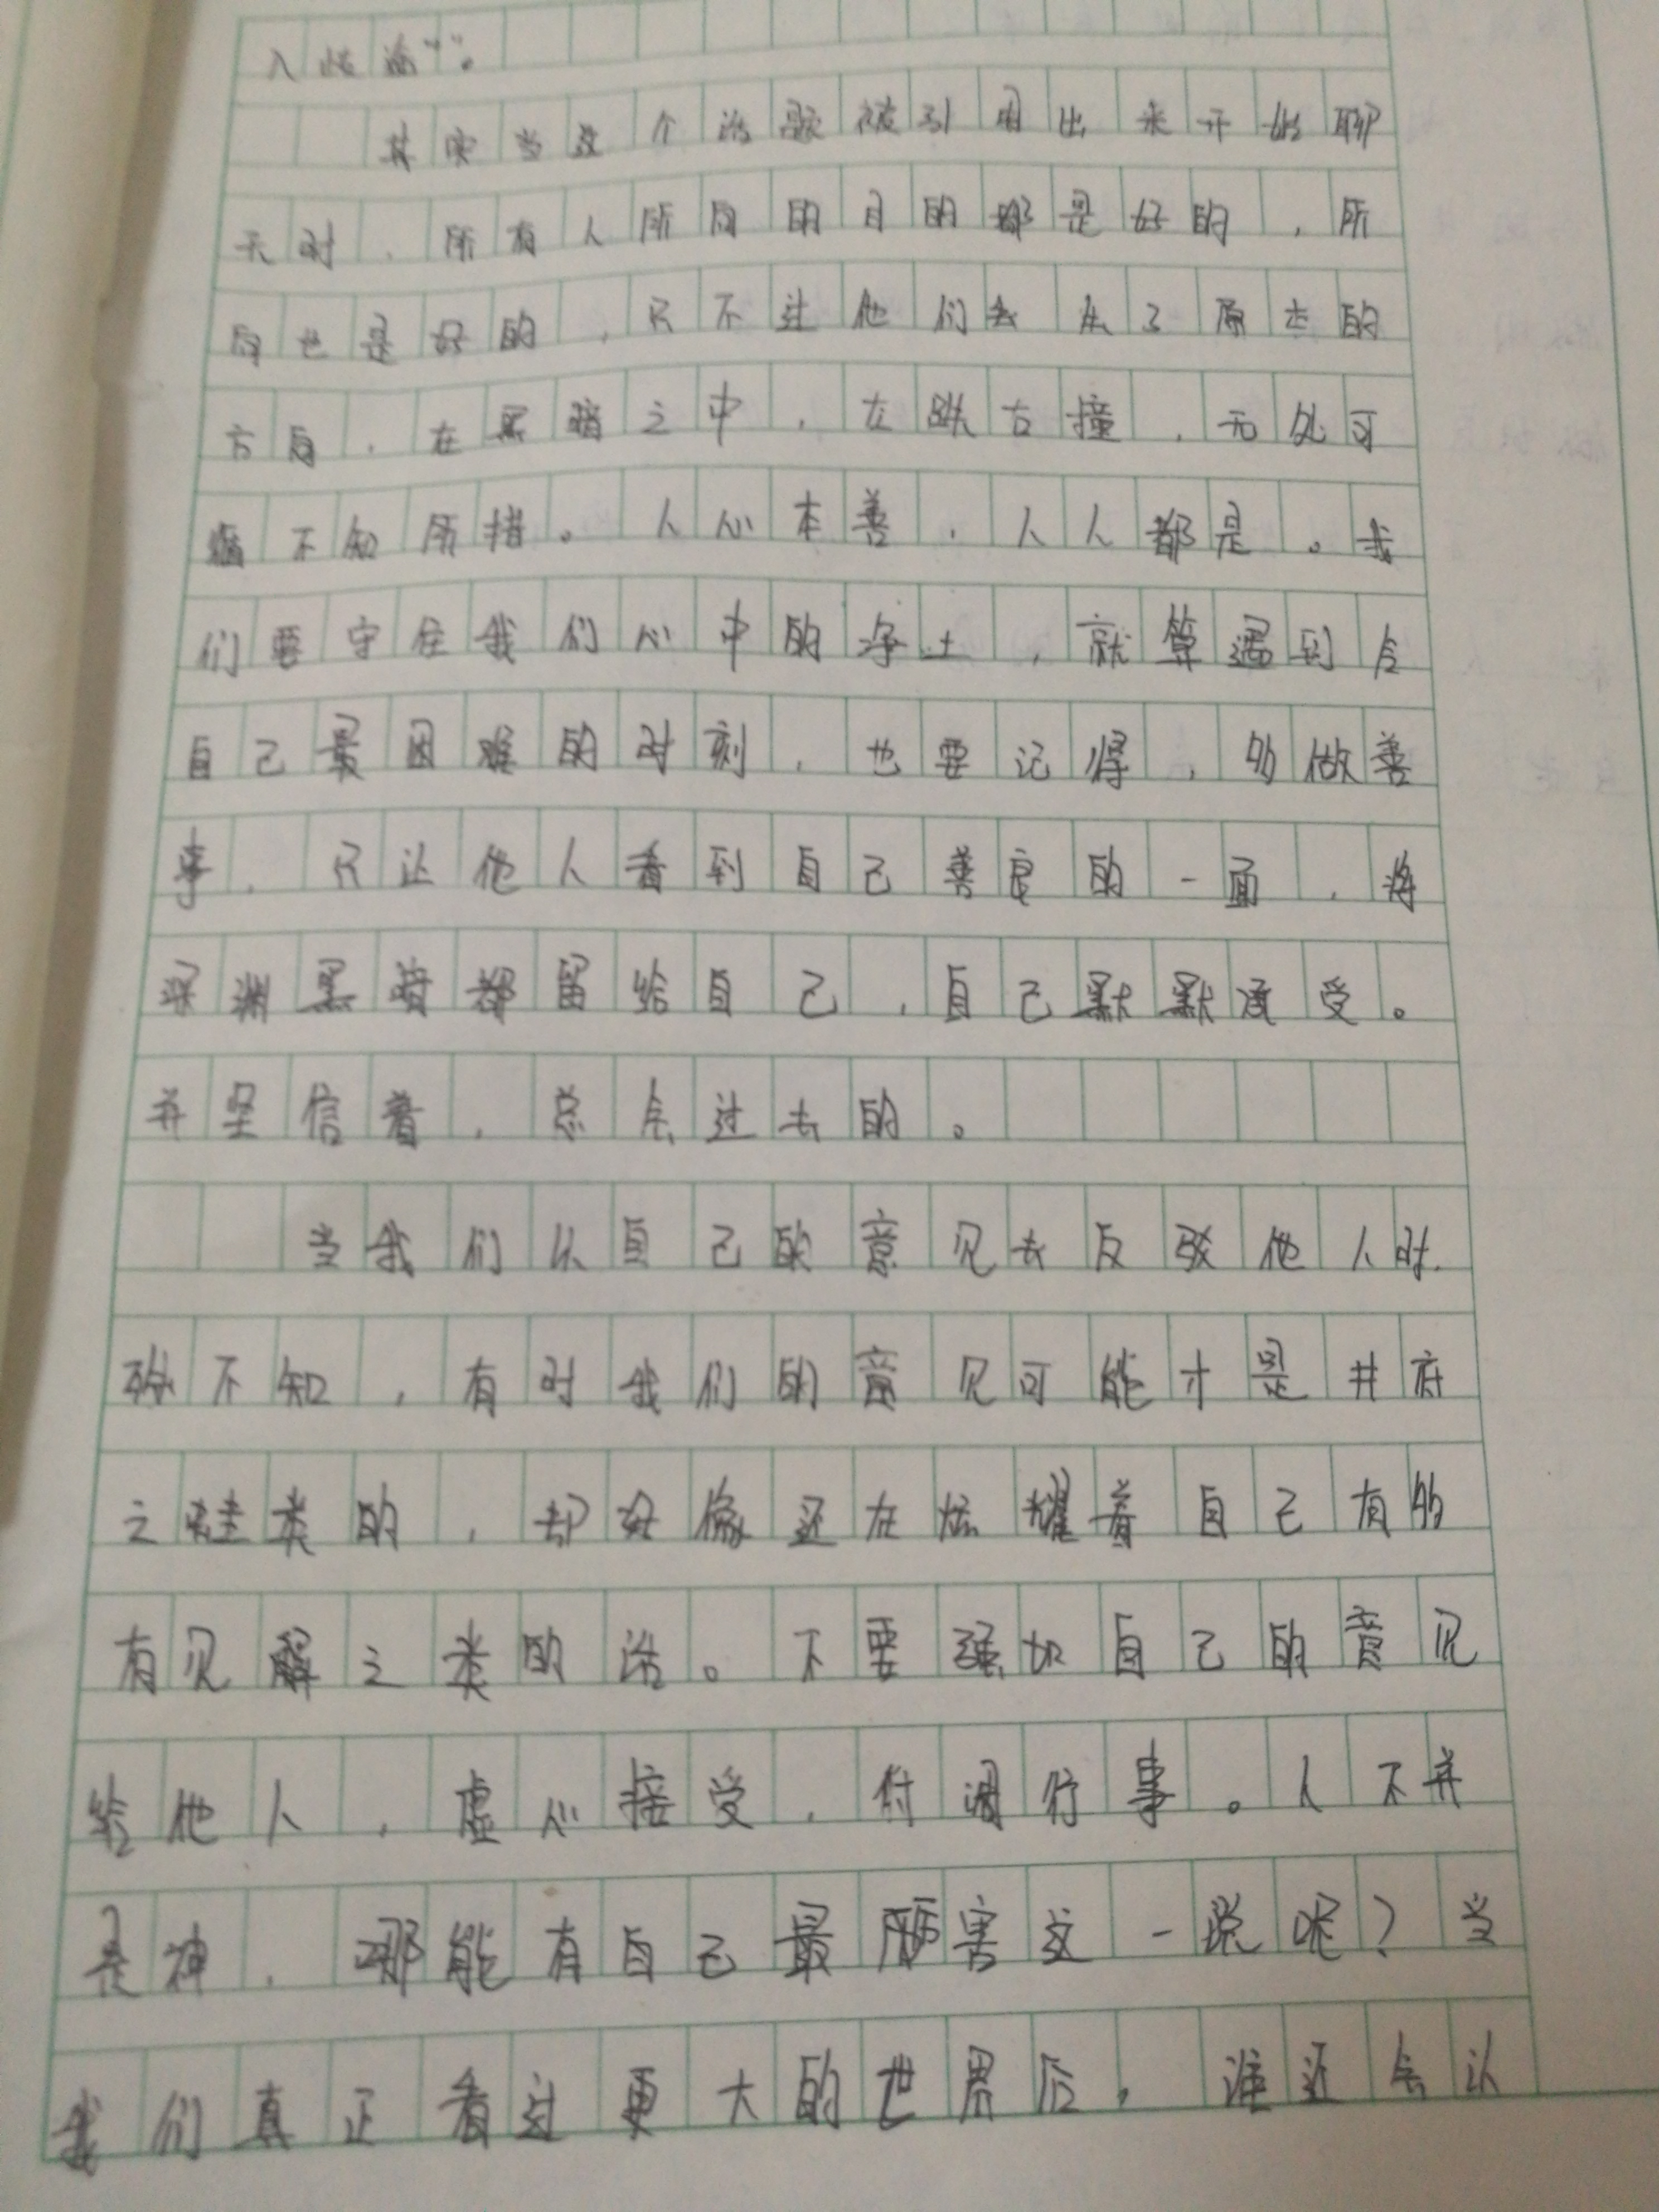 入歧途“”。
其实当这个话题被引用出来开始聊
天时，所有人所向的目的都是好的，所
向也是好的，只不过他们去失了原本的
方向，在黑暗之中，左跌右撞，无处可
不知所措。人心本善，人人都是。我
们要守住我们心中的净土，就算遇到令
自己最困难的时刻，也要记得，多做善
事，只让他人看到自己善良的一面，将
深渊黑暗都留给自己，自己默默承受。
并坚信着，总会过去的。
当我们从自己的意见去反驳他人时，
殊不知，有时我们的意见可能才是井底
之蛙类的，却好像还在炫耀着自己有多
有见解之类的话。不要强加自己的意见
给他人，虚心接受，付调行事。人不并
是神，哪能有自己最厉害这一说呢？当
我们真正看过更大的世界后，谁还会认